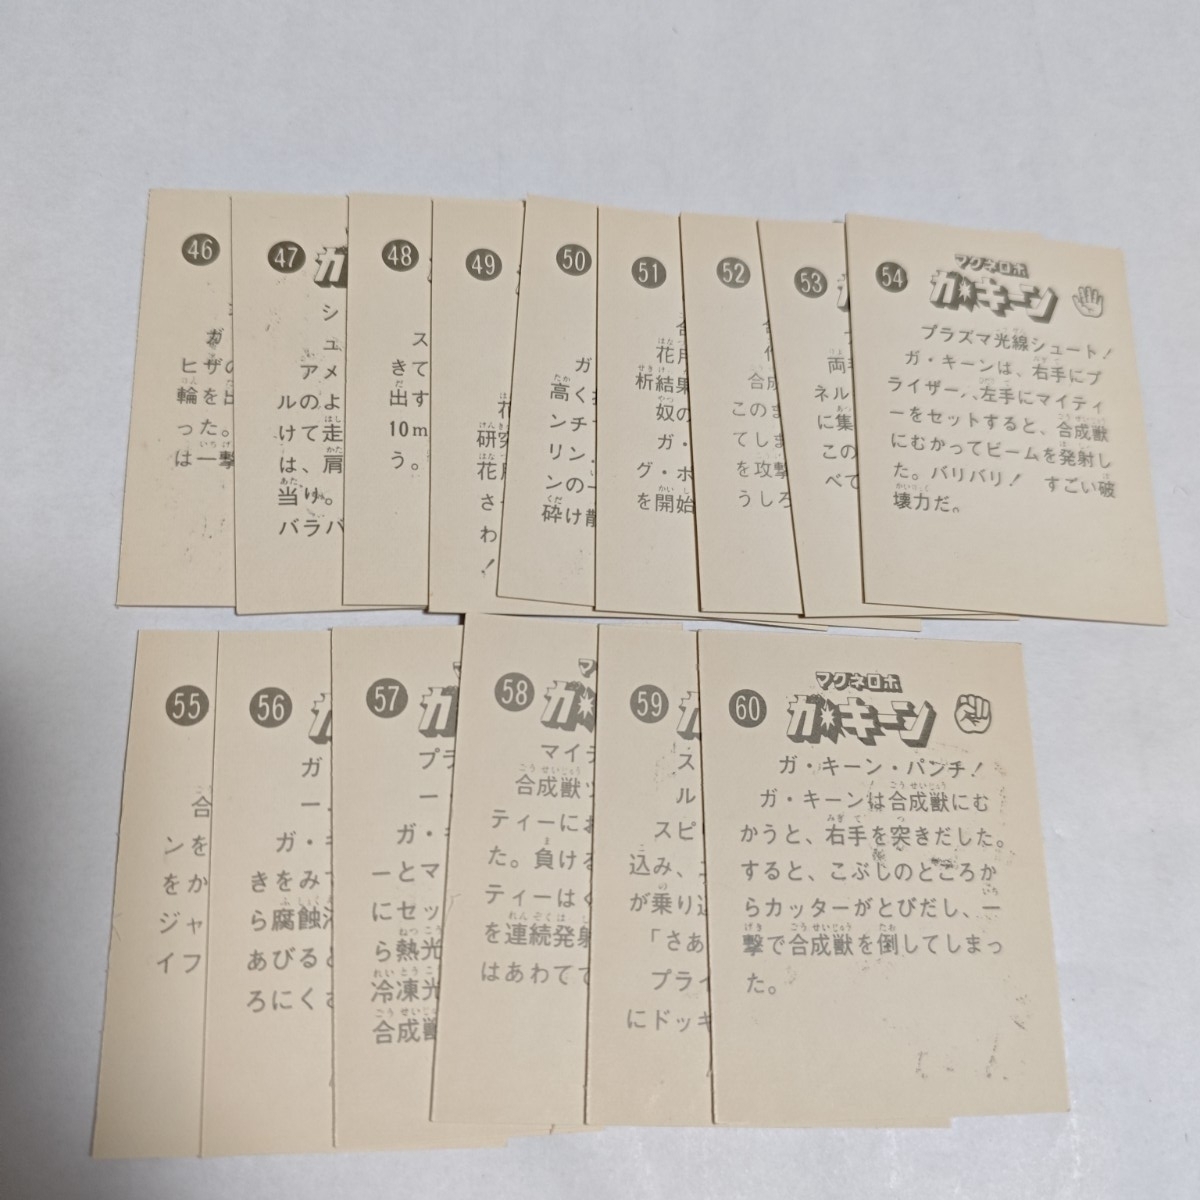 46
ガ
ヒザの
輪を出
った。
は一撃
47
ガ
シ
ュ
アメ
ルのよ
けて走
は、肩
当り。
バラバ
48
ス
きて
出す
10m
う。
49
花
研究
花月
さ
わ
！
50
ガ
高く
ンチ
リン・
ンの一
砕け散
51
合
花月
析結果
奴の
ガ・
グ・ホ
を開始
52
合成
このま
てしま
を攻撃
うしろ
53
両手
ネル
に集
この
べて
54
マグネロボ
ガ・キーン
プラズマ光線シュート！
ガ・キーンは、右手にプ
ライザー、左手にマイティ
ーをセットすると、合成獣
にむかってビームを発射し
た。バリバリ！　すごい破
壊力だ。
55
合
ンを
をか
ジャ
イフ
56
ガ
ー
ガ・キ
きをみて
ら腐蝕
あびると
ろにくさ
57
マ
ガ
プラ
ー
ガ・キ
ーとマ
にセッ
ら熱光
冷凍光
合成獣
58
マグ
ガ・
マイテ
合成獣
ティーにお
た。負ける
ティーはく
を連続発射
はあわてて
59
ガ
ス
ル
スピ
込み、
が乗り込
「さあ
プライ
にドッキ
60
マグネロボ
ガ・キーン
ガ・キーン・パンチ！
ガ・キーンは合成獣にむ
かうと、右手を突きだした。
すると、こぶしのところか
らカッターがとびだし、一
撃で合成獣を倒してしまっ
た。